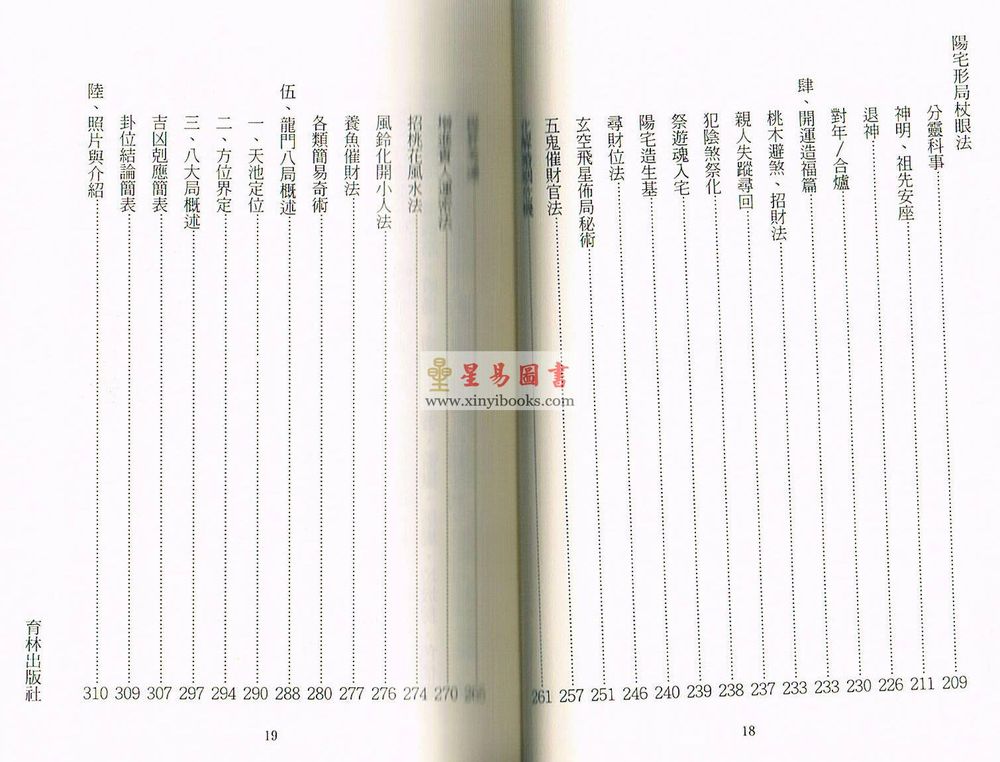 陽宅形局杖眼法……209
分靈科事……211
神明、祖先安座……226
退神……230
對年/合爐……233
肆、開運造福篇……233
桃木避煞、招財法……237
親人失蹤尋回……238
犯陰煞祭化……239
祭遊魂入宅……240
陽宅造生基……246
尋財位法……251
玄空飛星佈局秘術……257
五鬼催財官法……261
18
270
招桃花風水法……274
風鈴化開小人法……276
養魚催財法……277
各類簡易奇術……280
伍、龍門八局概述……288
一、天池定位……290
二、方位界定……294
三、八大局概述……297
吉凶剋應簡表……307
卦位結論簡表……309
陸、照片與介紹……310
19
育林出版社
星易圖書
www.xinyibooks.com